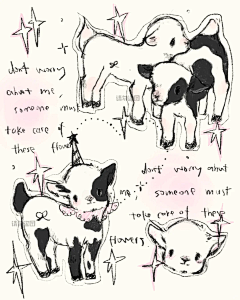 dont worry
about me,
someone must
take care of
these flowers
dont worry about
me, someone must
take care of these
flowers